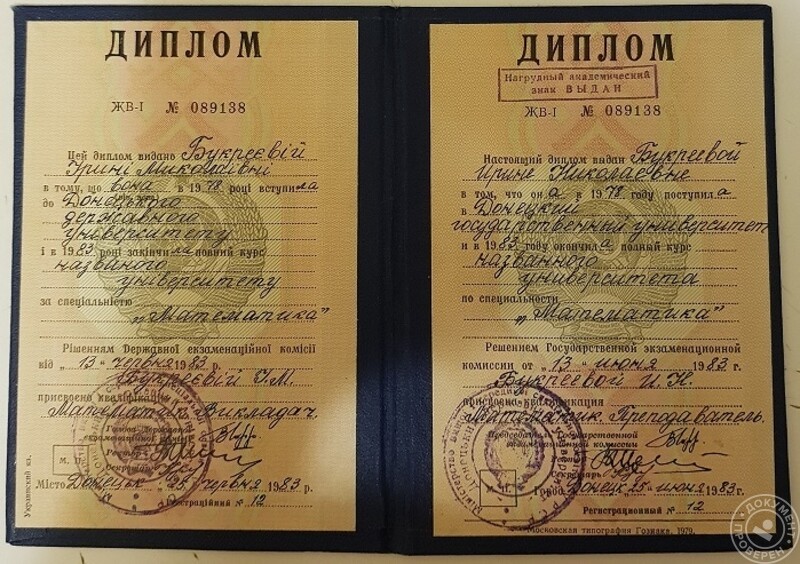 ДИПЛОМ
ЖВ-І № 089138
Цей диплом видано Букреєвій
Ірині Миколаївні
в тому, що вона в 1978 році вступила
до Донецького
державного
університету
і в 1983 році закінчила повний курс
названого
університету
за спеціальністю
„Математика"
Рішенням Державної екзаменаційної комісії
від „13" червня 1983 р.
Букреєвій І.М.
присвоєно кваліфікацію
Математик. Викладач.
Голова Державної
екзаменаційної комісії
Ректор
Секретар
М. П.
Місто Донецьк „25" червня 1983 р.
Реєстраційний № 12
Украинский яз.
ДИПЛОМ
Нагрудный академический
знак ВЫДАН
ЖВ-І № 089138
Настоящий диплом выдан Букреевой
Ирине Николаевне
в том, что она в 1978 году поступила
в Донецкий
государственный университет
и в 1983 году окончила полный курс
названного
университета
по специальности
„Математика"
Решением Государственной экзаменационной
комиссии от „13" июня 1983 г.
Букреевой И. Н.
присвоена квалификация
Математик. Преподаватель.
Председатель Государственной
экзаменационной комиссии
Секретарь
М. П.
Город Донецк „25" июня 1983 г.
Регистрационный № 12
Московская типография Гознака. 1979.
ДОКУМЕНТ ПРОВЕРЕН